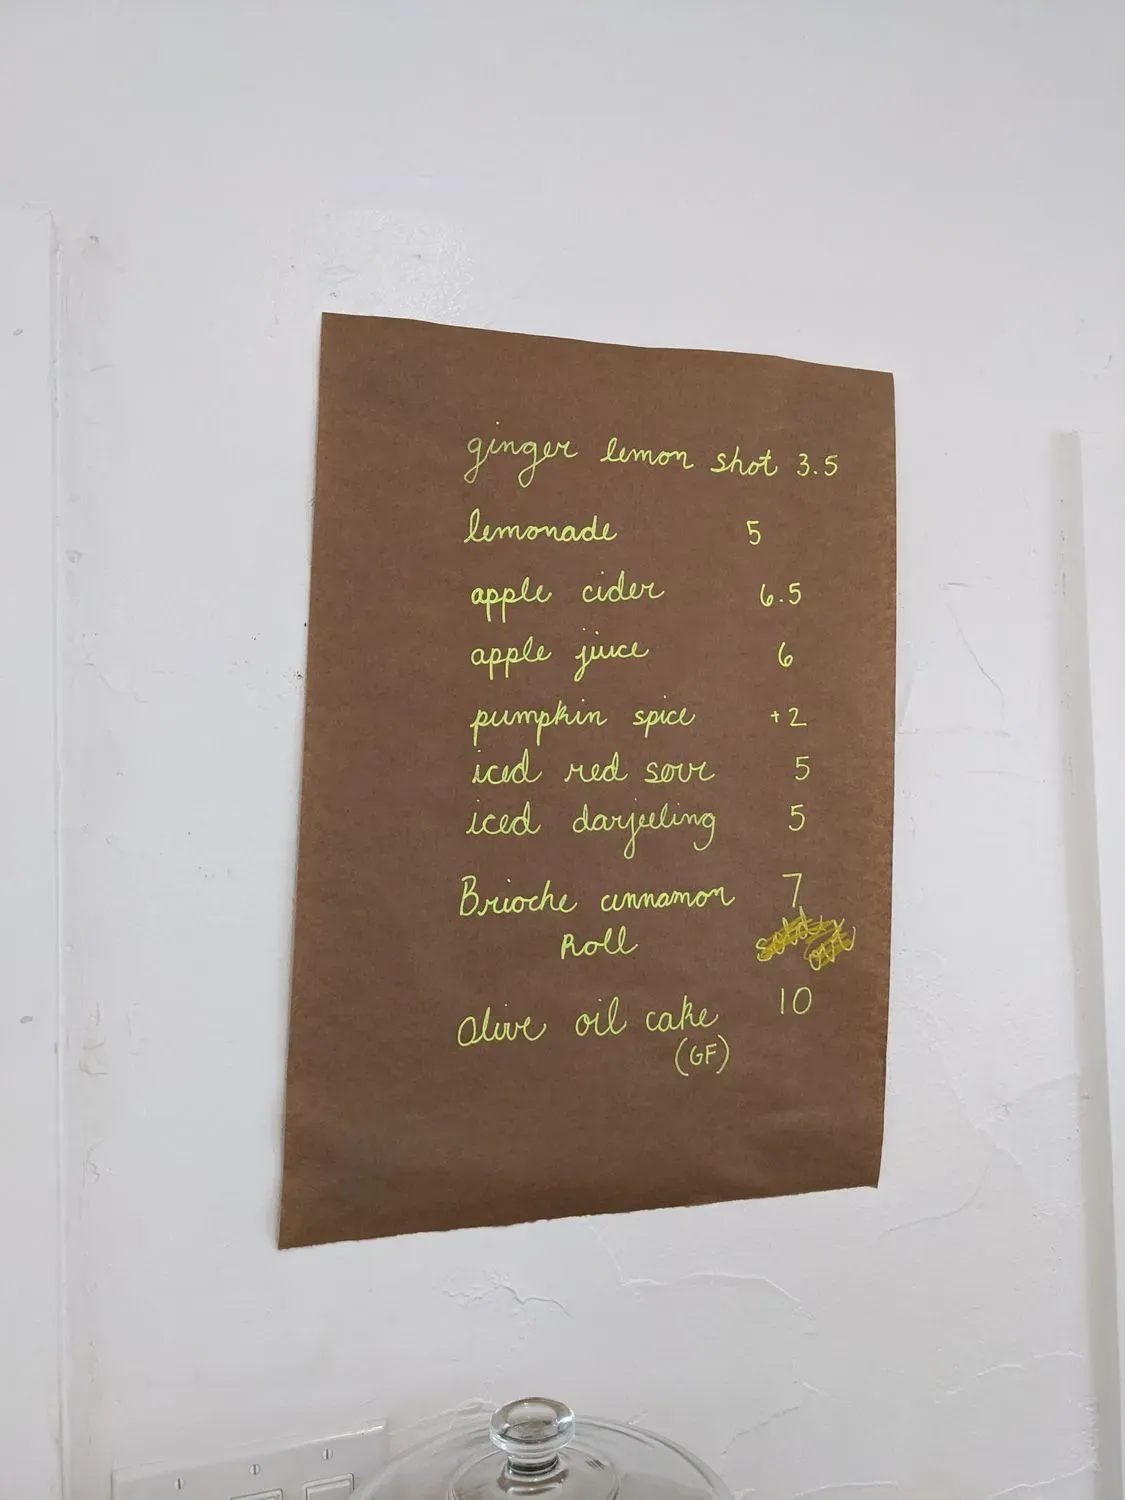 ginger lemon shot 3.5
lemonade 5
apple cider 6.5
apple juice 6
pumpkin spice +2
iced red sour 5
iced darjeeling 5
Brioche cinnamon 7
Roll sold out
Olive oil cake 10
(GF)